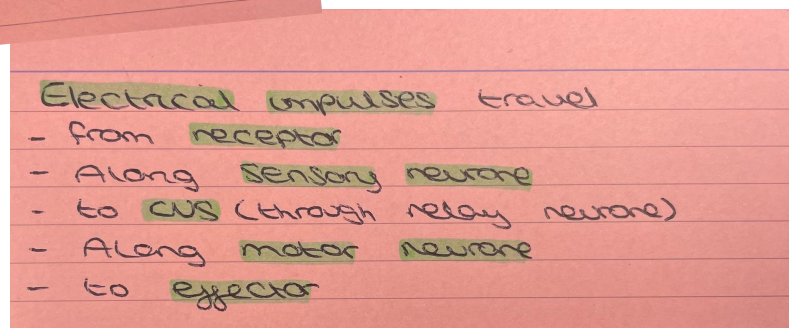 Electrical impulses travel
- from receptor
- Along sensory neurone
- to CNS (through relay neurone)
- Along motor neurone
- to effector